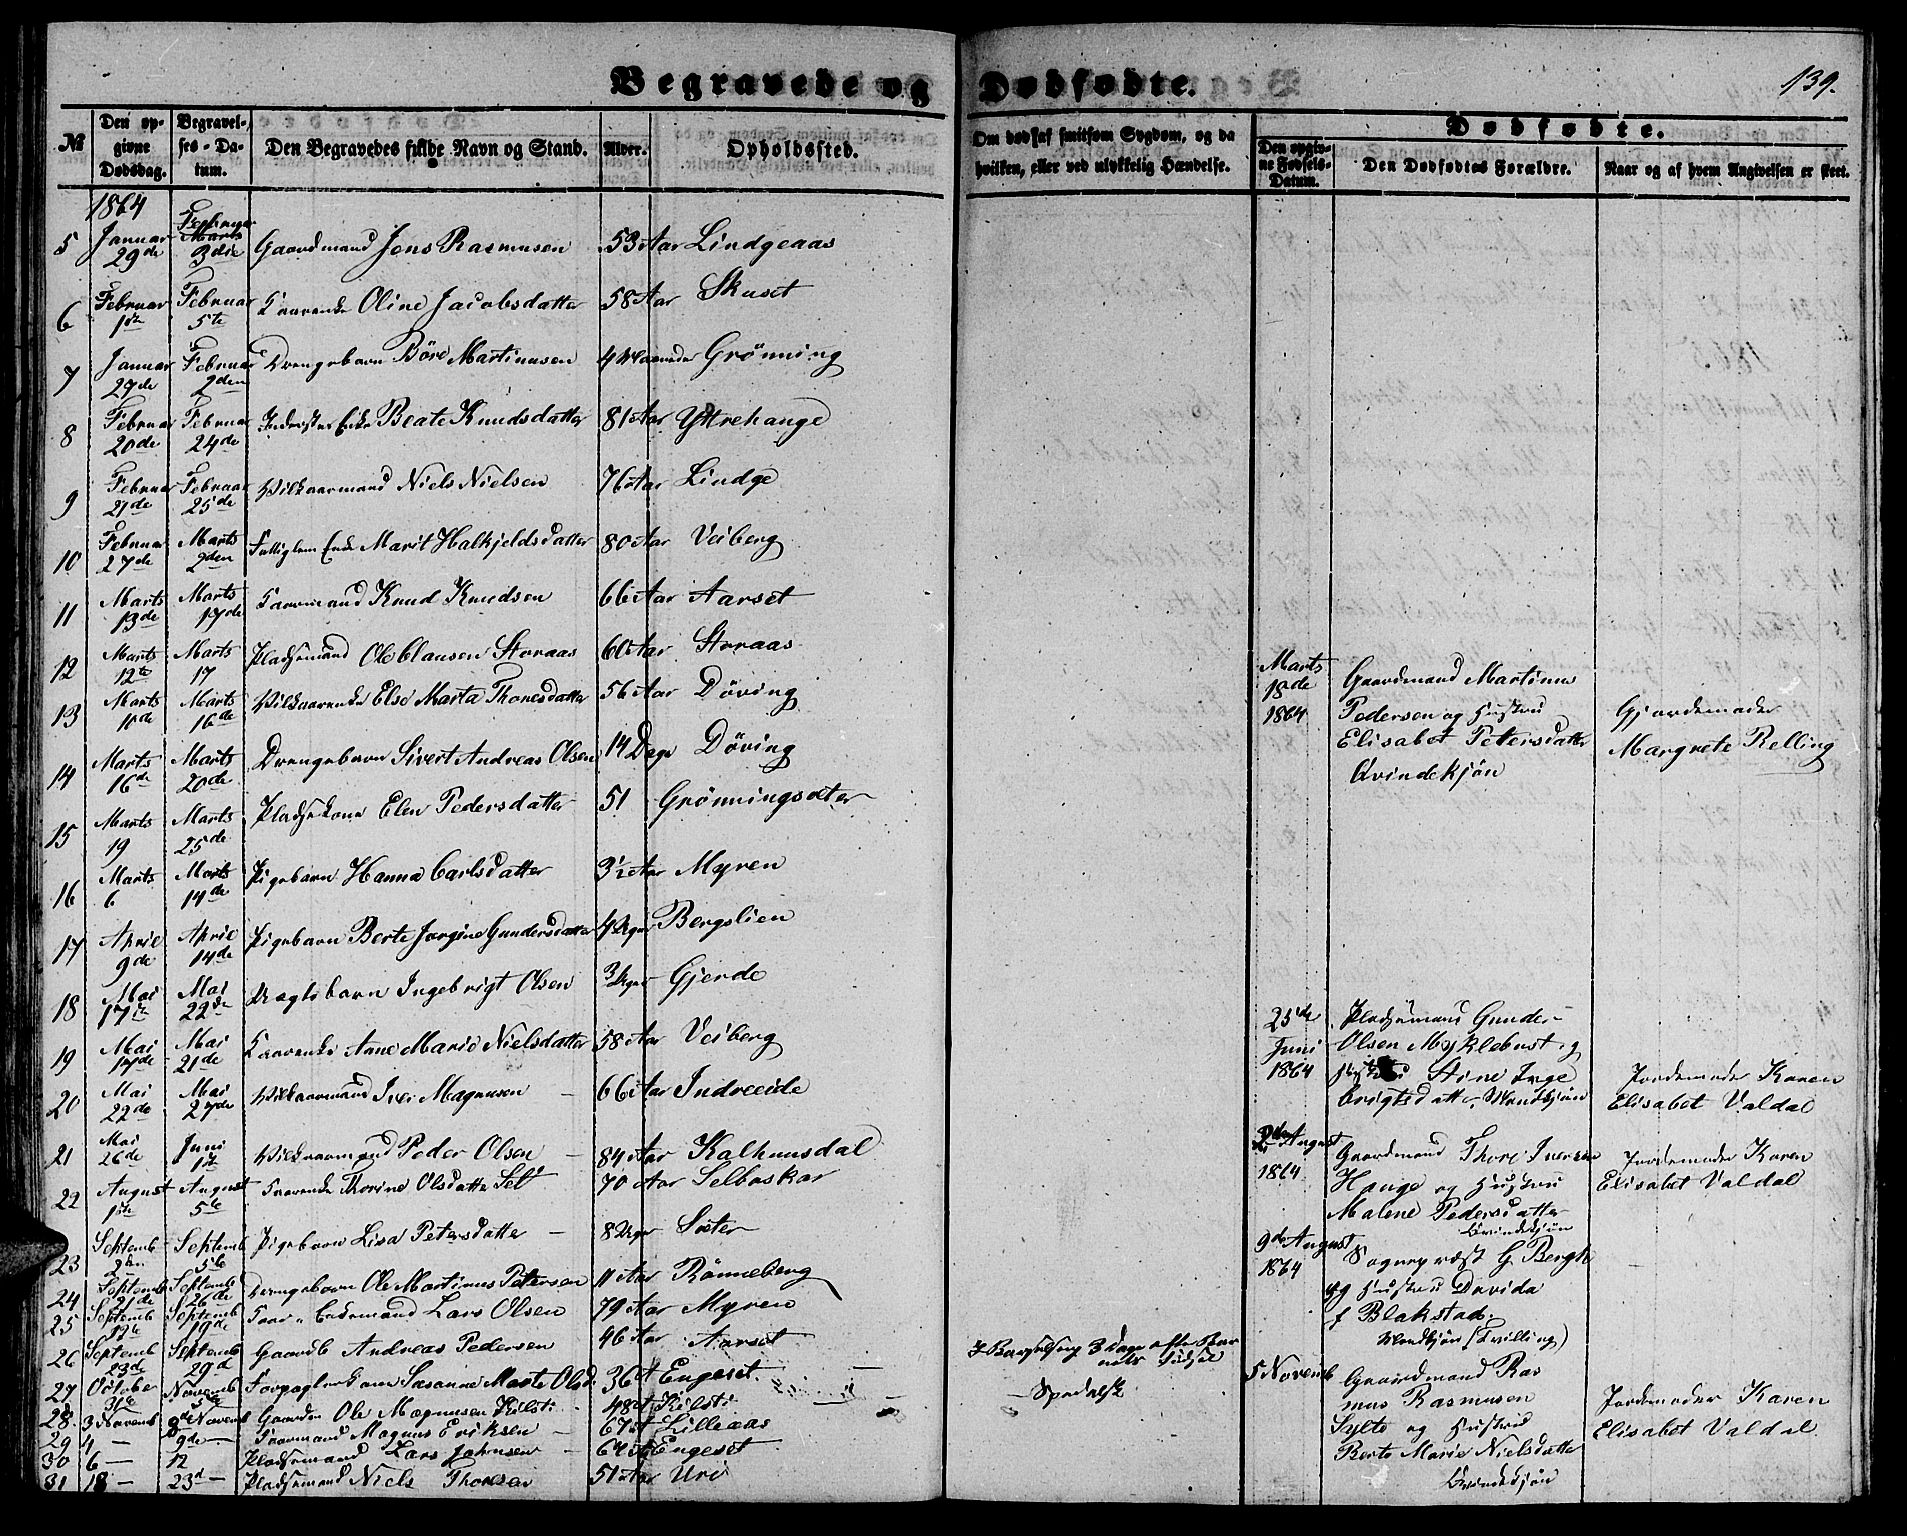 Begravede og Dødfødte.
139.
№
Den opgivne Dødsdag.
Begravelses-Datum.
Den Begravedes fulde Navn og Stand.
Alder.
Opholdssted.
Om dødsfaf smitsom Sygdom, og da hvilken, eller ved ulykkelig Hændelse.
Dødfødte.
Den opgivne Fødsels-Datum.
Den Dødfødtes Forældre.
Naar og af hvem Angivelsen er skeet.
1864
5 Januar 29de Februar 3die Gaardmand Jens Rasmusen 53 Aar Lindgeaas
6 Februar 1ste Februar 5te Oline Jacobsdatter 58 Aar Skuset
7 Januar 27de Februar 2den Drengebarn Böre Martinusen 4 Maaneder Grönning
8 Februar 20de Februar 24de Inderster Enke Beate Knudsdatter 81 Aar Yttrehauge
9 Februar 21de Februar 25de Vilkaarmand Niels Nielsen 76 Aar Lindge
10 Februar 27de Marts 2den Fattiglem Enke Marit Halkjeldsdatter 80 Aar Veiberg
11 Marts 13de Marts 17de Knud Knudsen 66 Aar Aarset
12 Marts 12te Marts 17 Pladsemand Ole Clausen Storaas 60 Aar Storaas
13 Marts Marts 16de Else Marta Thoresdatter 56 Aar Döving
14 Marts 16de Marts 20de Drengebarn Sivert Andreas Olsen 14 Dage Döving
15 Marts 19 Marts 25de Pladsekone Elen Pedersdatter 51 Grönningsæter
16 Marts 6 Marts 14de Pigebarn Hanna Carlsdatter 3½ Aar Myren
17 April 9de April 14de Pigebarn Berte Jorgine Gundersdatter 4 Uger Bergslien
18 Mai 17de Mai 22de Ingebrigt Olsen 3 Uger Gjerde
19 Mai Mai 21de Anne Marie Nielsdatter 58 Aar Veiberg
20 Mai 22de Mai 27de Vilkaarmand Iver Magnusen 66 Aar Indreeide
21 Mai 26de Juni 1ste Vilkaarmand Peder Olsen 84 Aar Kalhuusdal
22 August 1ste August 5te Thorine Olsdatter 70 Aar Selboskar
23 Septemb Septemb 5te Pigebarn Lisa Petersdatter 8 Uger Sæter
24 Septemb 21de Septemb 26de Drengebarn Ole Martinus Petersen 11 Aar Rönneberg
25 Septemb Septemb 19de Lars Olsen 79 Aar Myren
26 Septemb 23de Septemb 29d Gaardb Andreas Pedersen 46 Aar Aarset
27 October Novemb Susanne Marte Olsd. 36 A Engeset
28 3 Novemb Novemb Ole Magnusen Kilsti 48 A Kilsti
29 4 — 9de — Magnus Eriksen 67 A Lilleaas
30 6 — 12 Pladsemand Lars Johnsen 64 A Engeset
31 18 — 23d — Pladsemand Niels Thoresen 51 Aar Uri
I Barselseng 3 Dage efter
Spedalsk
Marts 18de 1864
Gaardmand Martinus
Pedersen og Hustru
Elisabet Petersdatter
Qvindekjön
Gjordemoder
Margrete Relling
25de Juni 1864
Pladsemand Gunder
Olsen Myklebust og
Stine Inge
brigtsdatter, Mandkjön
Jordemoder Karen
Elisabet Valdal
August 1864
Gaardmand Thore Iversen
Hauge og Hustru
Malene Pedersdatter
Qvindekjön
Jordemoder Karen
Elisabet Valdal
9de August 1864
Sognepræst G. Bergh
og Hustru Davida
f Blakstad.
Mandkjön (Tvilling)
5 Novemb
Gaardmand Ras
mus Rasmusen
Sylte og Hustru
Berte Marie Nielsdatter
Qvindekjön
Jordemoder Karen
Elisabet Valdal